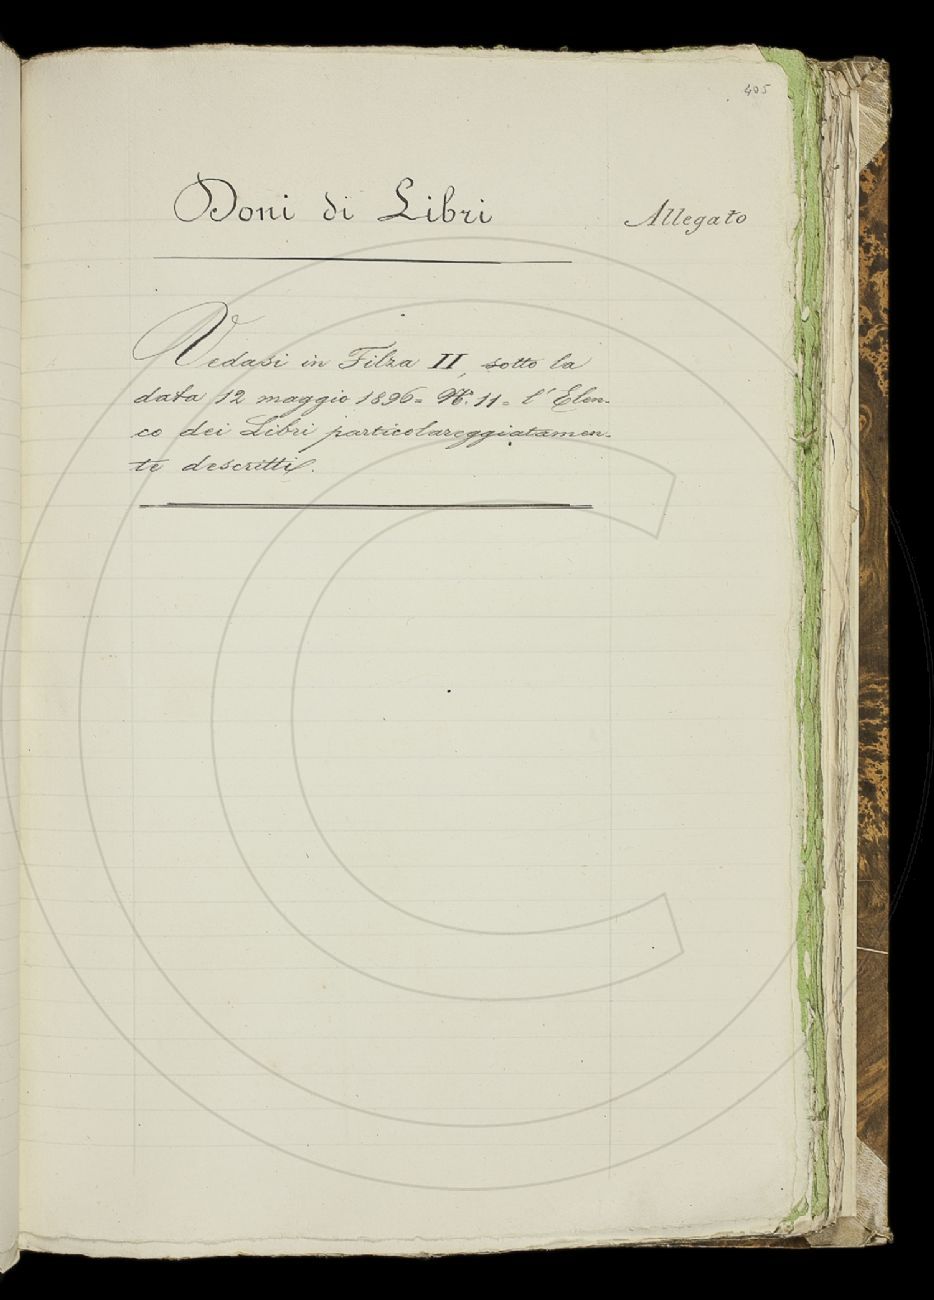 405
Doni di Libri
Allegato
Vedasi in Filza II, sotto la
data 12 maggio 1896 = N. 11 = l'Elen-
co dei Libri particolareggiatamen-
te descritti.